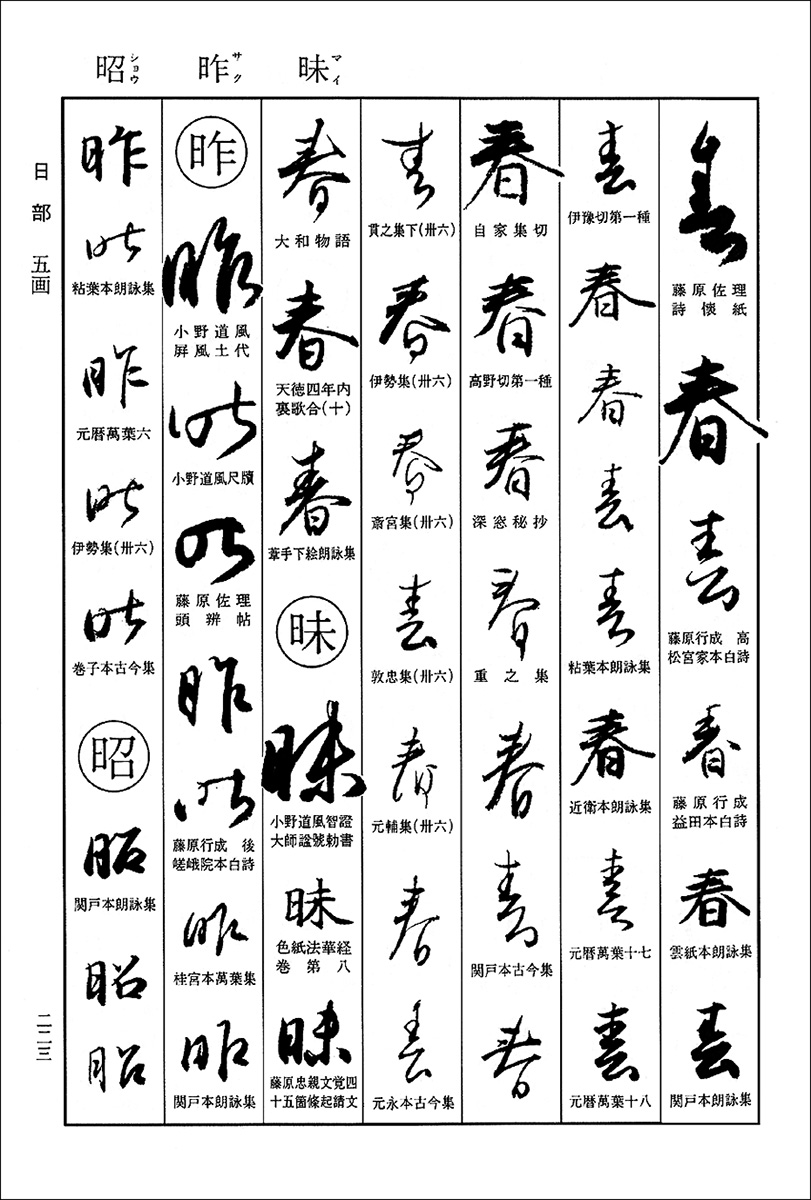 昭 ショウ
昨 サク
昧 マイ
日部 五画
二二三
春
藤原佐理
詩懐紙
春
春
藤原行成 高
松宮家本白詩
春
藤原行成
益田本白詩
春
雲紙本朗詠集
春
関戸本朗詠集
春
伊豫切第一種
春
春
春
春
粘葉本朗詠集
春
近衛本朗詠集
春
元暦萬葉十七
春
元暦萬葉十八
春
自家集切
春
高野切第一種
春
深窓秘抄
春
重之集
春
春
関戸本古今集
春
春
貫之集下(卅六)
春
伊勢集(卅六)
春
斎宮集(卅六)
春
敦忠集(卅六)
春
元輔集(卅六)
春
春
元永本古今集
春
大和物語
春
天徳四年内
裏歌合(十)
春
葦手下絵朗詠集
昧
昧
小野道風智證
大師諡號勅書
昧
色紙法華経
巻第八
昧
藤原忠親文覚四
十五箇條起請文
昨
昨
小野道風
屏風土代
昨
小野道風尺牘
昨
藤原佐理
頭辨帖
昨
昨
藤原行成 後
嵯峨院本白詩
昨
桂宮本萬葉集
昨
関戸本朗詠集
昨
昨
粘葉本朗詠集
昨
元暦萬葉六
昨
伊勢集(卅六)
昨
巻子本古今集
昭
昭
関戸本朗詠集
昭
昭